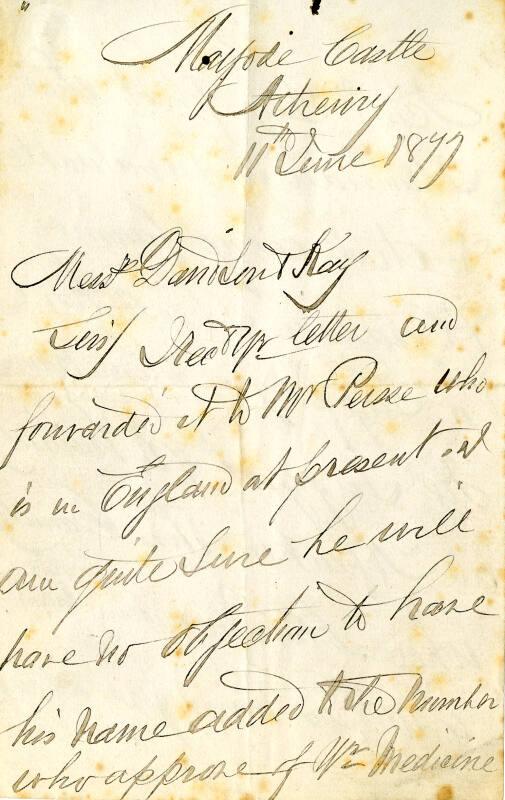 Moyode Castle
Athenry
11th June 1877
Messrs Davidson & Kay
Sirs I Recd Yr letter and
forwarded it to Mr Persse who
is in England at present & I
am quite Sure he will
have no objection to have
his Name added to the Number
who approve of Yr Medicine